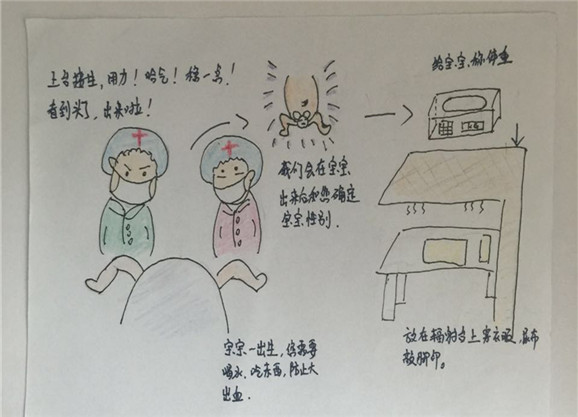 上台接生,用力!哈气!稳一点!
看到头了,出来啦!
我们会在宝宝
出来后和您确定
宝宝性别.
给宝宝称体重
宝宝一出生,您需要
喝水、吃东西,防止大
出血.
放在辐射台上穿衣服,尿布
按脚印。